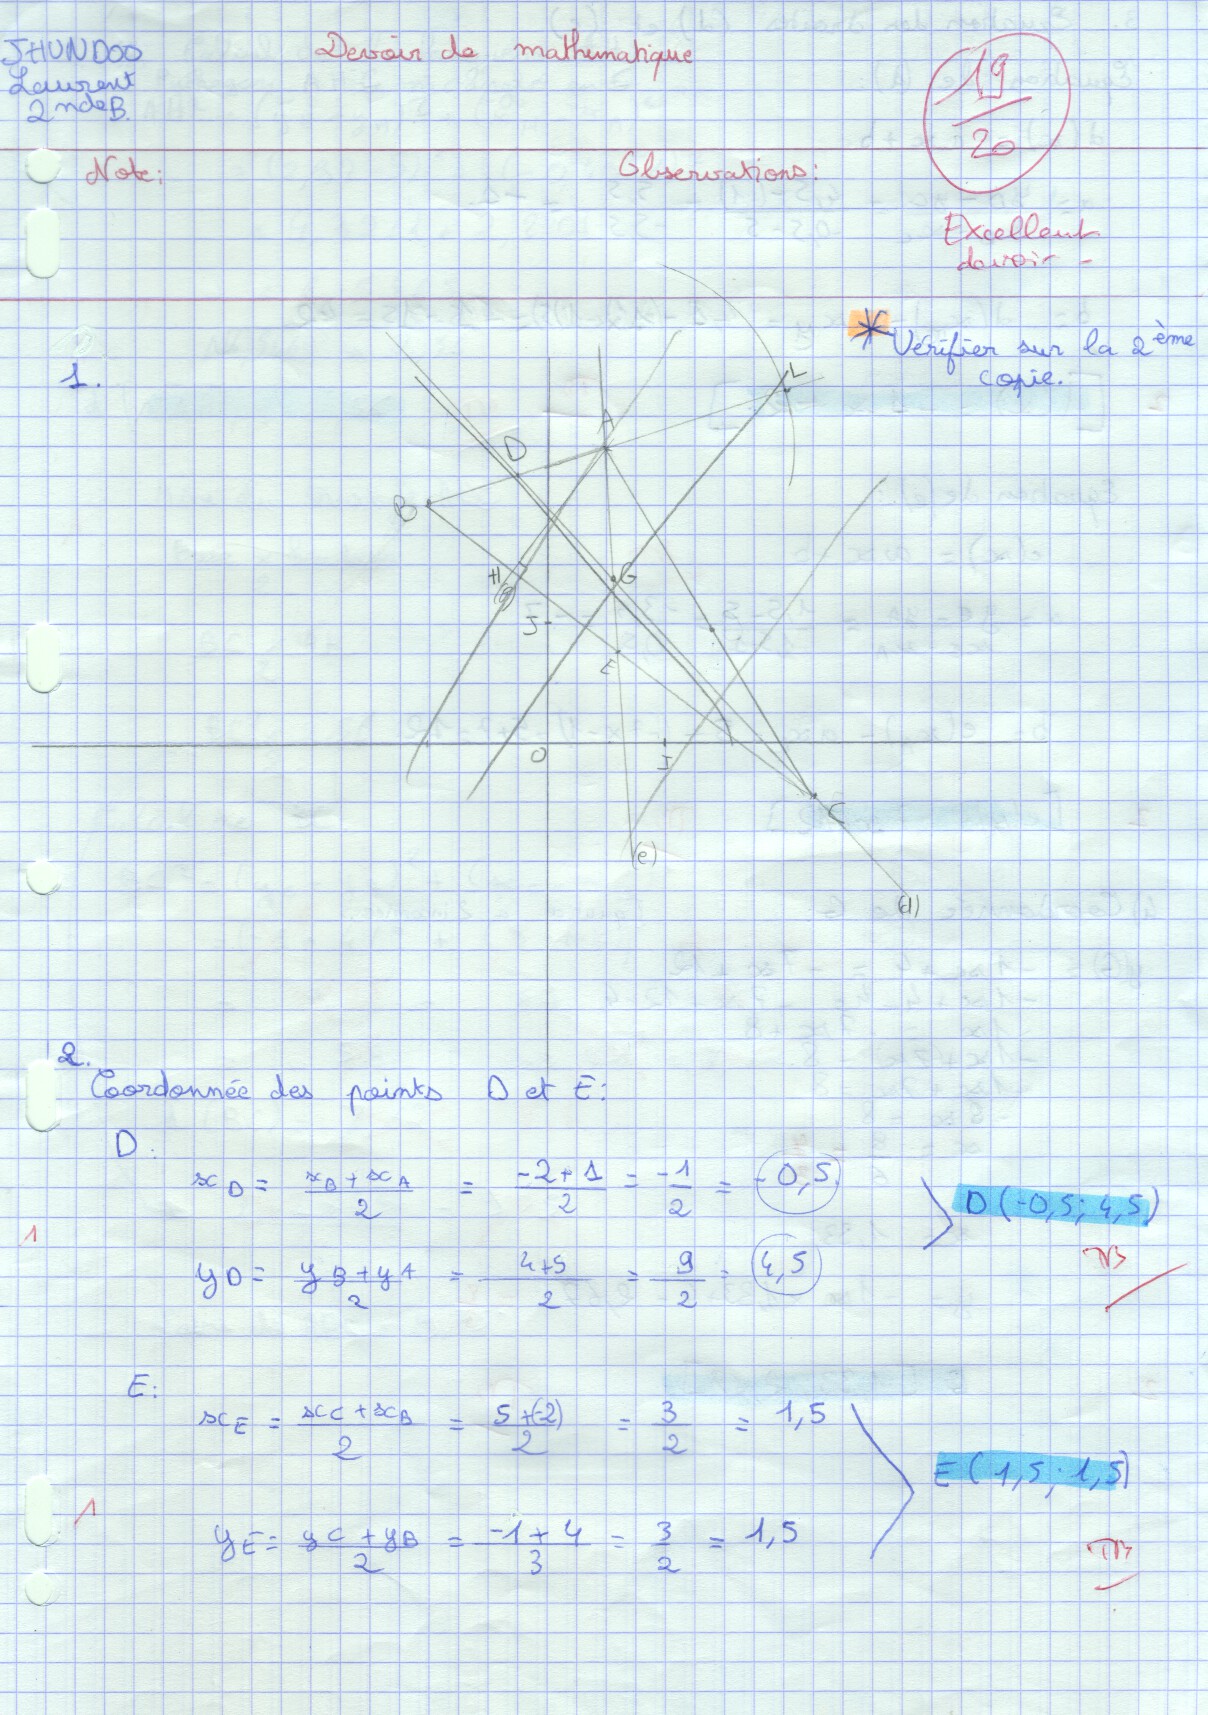 JHUNDOO
Laurent
2ndeB.
Devoir de mathematique
19
20
Note:
Observations:
Excellent
devoir -
* Vérifier sur la 2ème
copie.
1.
L
A
D
B
H
G
J
E
O
I
C
(e)
(d)
2.
Coordonnée des points D et E:
D:
xD = xB + xA / 2 = -2+1 / 2 = -1 / 2 = -0,5
D (-0,5; 4,5)
1
TB
yD = yB + yA / 2 = 4+5 / 2 = 9 / 2 = 4,5
E:
xE = xC + xB / 2 = 5+(-2) / 2 = 3 / 2 = 1,5
E (1,5; 1,5)
1
yE = yC + yB / 2 = -1+4 / 3 = 3 / 2 = 1,5
TB